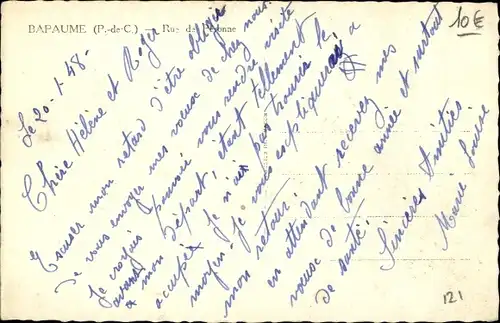 BAPAUME (P.-de-C.) — Rue de Péronne
10€
Le 20-1-48-
Chère Hélène et Roger
Excuser mon retard d'être obligée
de vous envoyer mes vœux de chez nous.
Je croyais pouvoir vous rendre visite
avant mon départ, étant tellement
occupée je n'ai pas trouvé le
moyen. Je vous expliquerai à
mon retour.
en attendant recevez mes
vœux de bonne année et surtout
de santé.
Sincères Amitiés
Marie Louise
121